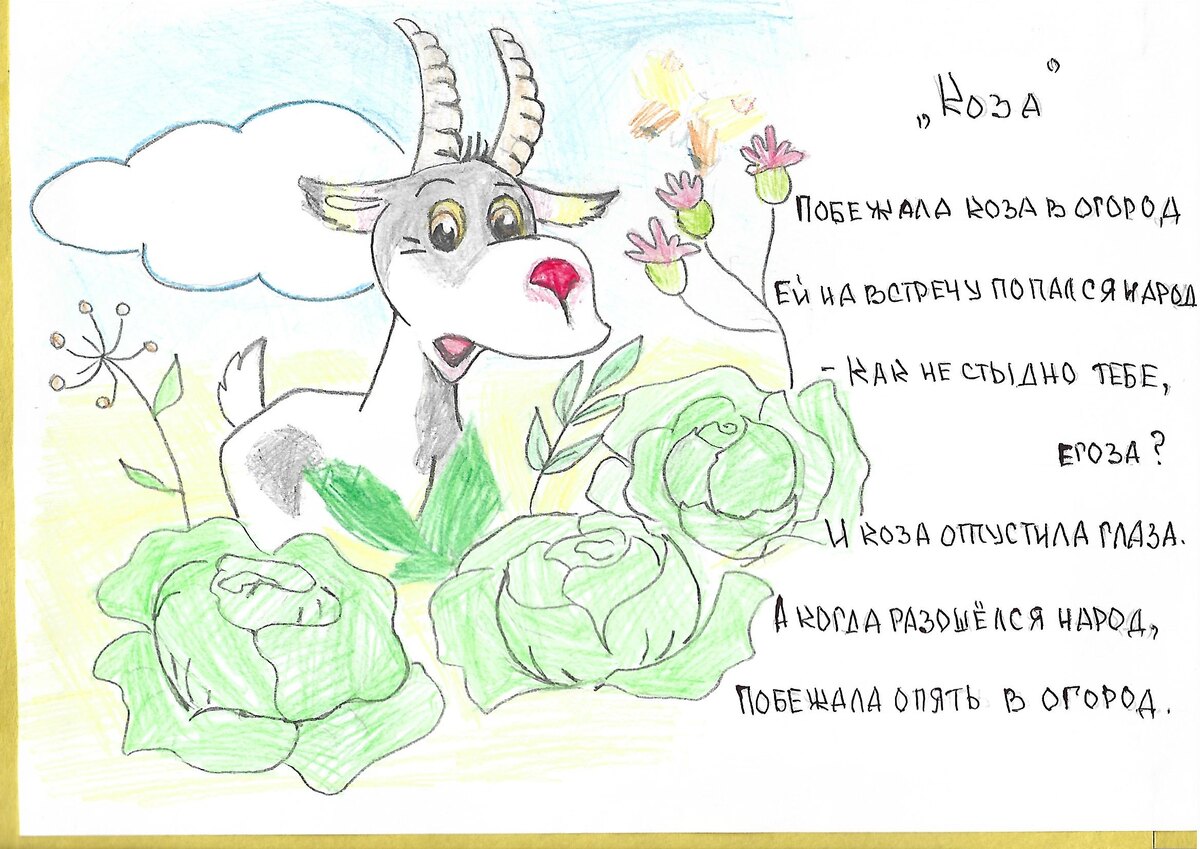 „Коза”
Побежала коза в огород
Ей на встречу попался народ
- Как не стыдно тебе,
егоза?
И коза отпустила глаза.
А когда разошёлся народ,
Побежала опять в огород.